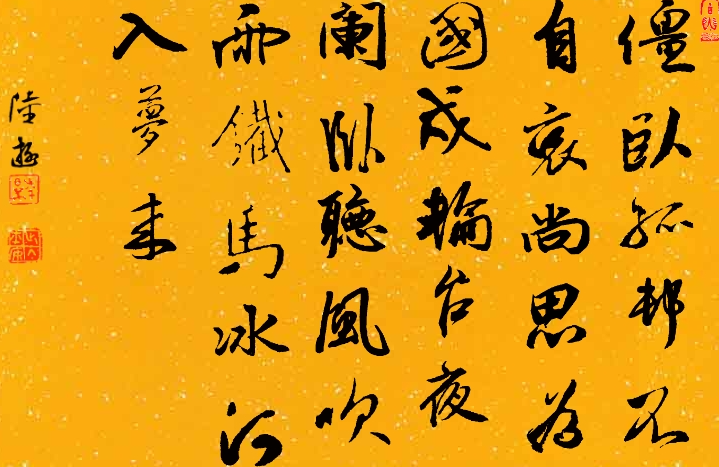 僵臥孤邨不
自哀尚思為
國戍輪台夜
闌臥聽風吹
雨鐵馬冰河
入夢来
陸游